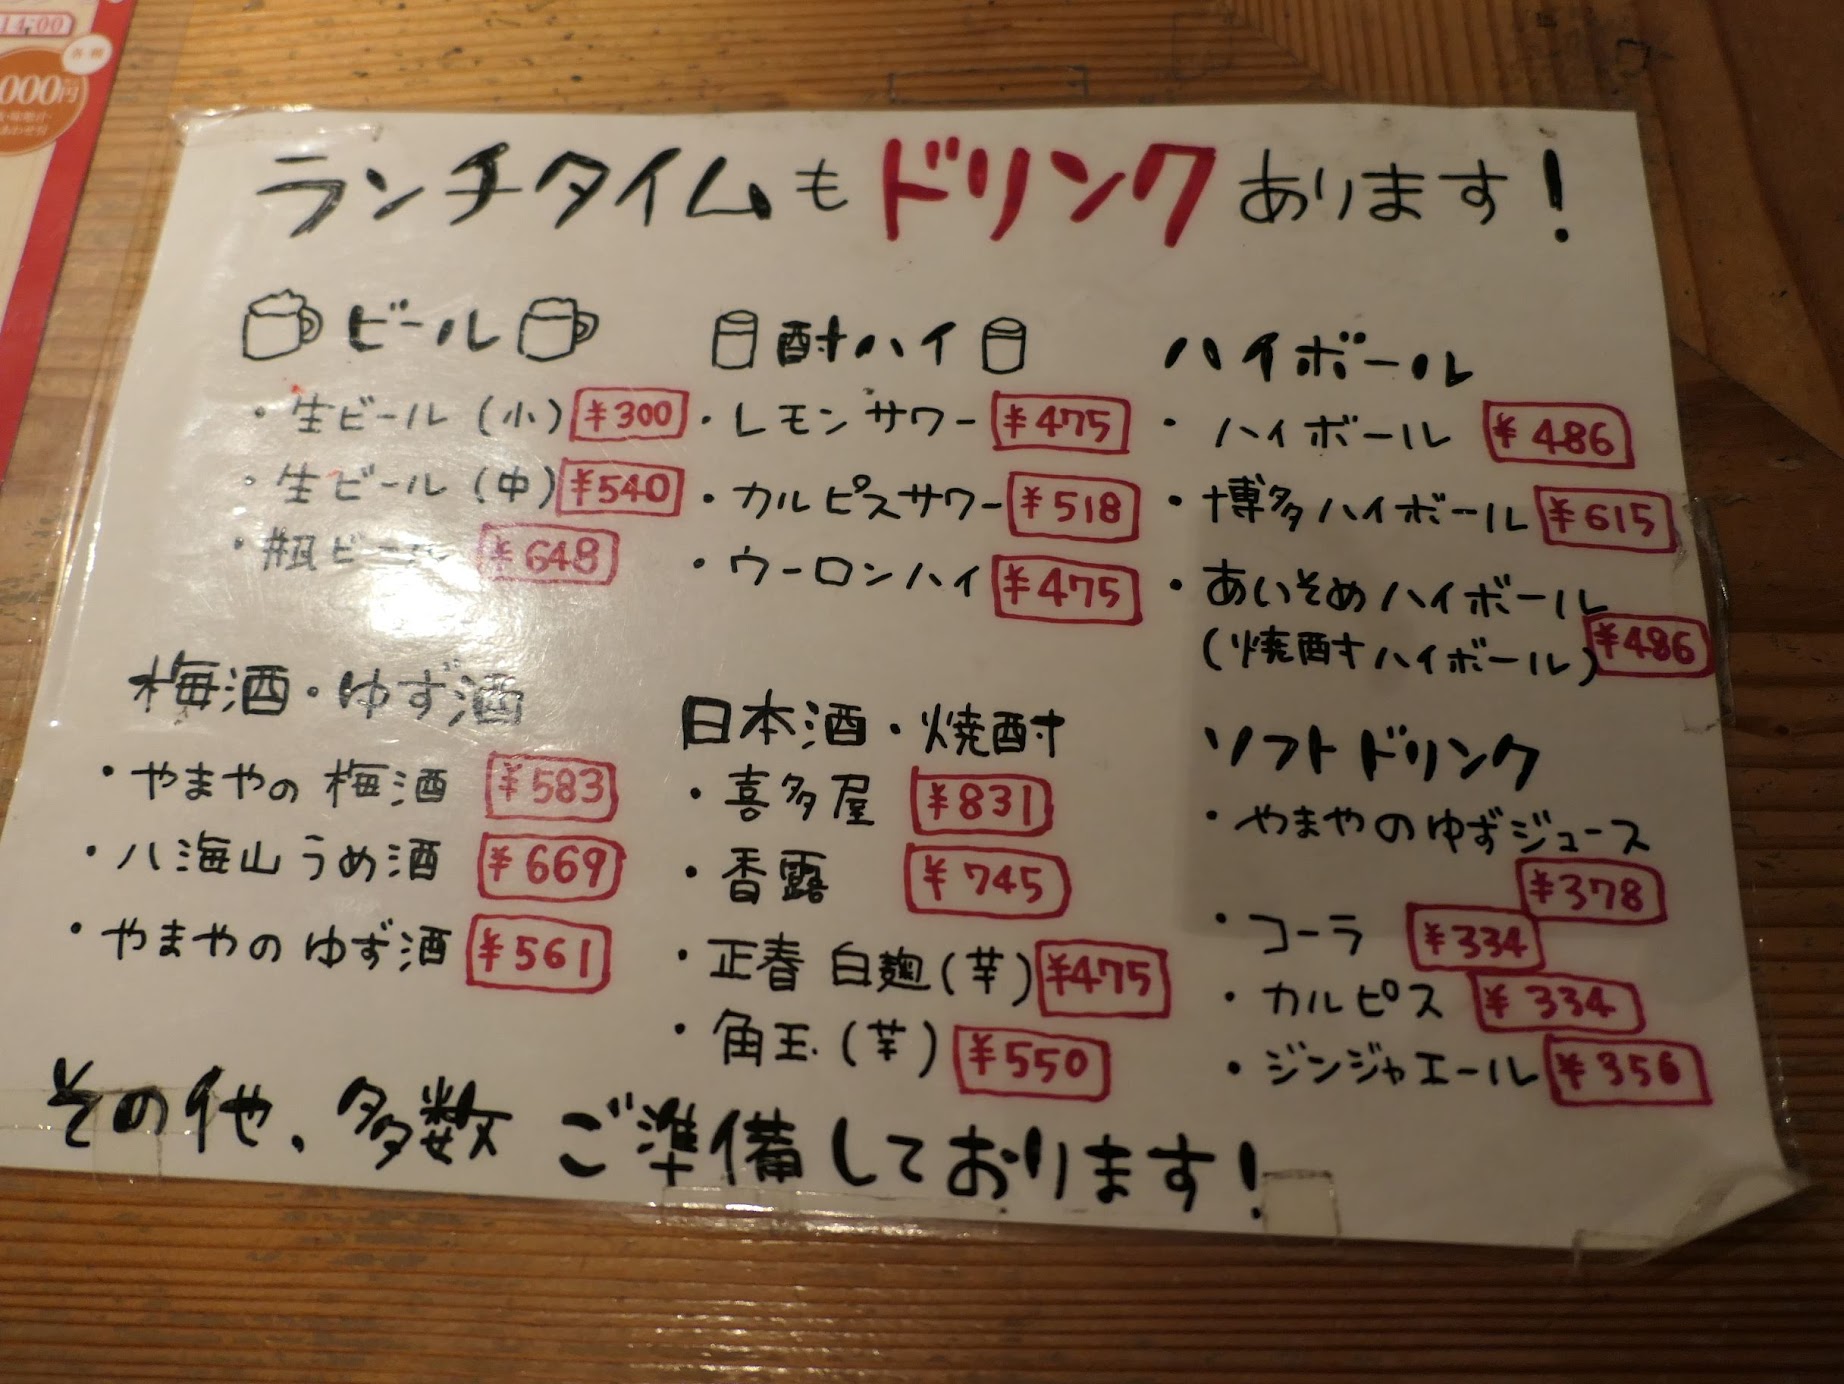 14:00
各種
000円
ランチタイムもドリンクあります!
ビール
・生ビール(小) ¥300
・生ビール(中) ¥540
・瓶ビール ¥648
酎ハイ
・レモンサワー ¥475
・カルピスサワー ¥518
・ウーロンハイ ¥475
ハイボール
・ハイボール ¥486
・博多ハイボール ¥615
・あいそめハイボール
(焼酎ハイボール) ¥486
梅酒・ゆず酒
・やまやの梅酒 ¥583
・八海山うめ酒 ¥669
・やまやのゆず酒 ¥561
日本酒・焼酎
・喜多屋 ¥831
・香露 ¥745
・正春 白麹(芋) ¥475
・角玉(芋) ¥550
ソフトドリンク
・やまやのゆずジュース
¥378
・コーラ ¥334
・カルピス ¥334
・ジンジャエール ¥356
その他、多数ご準備しております!